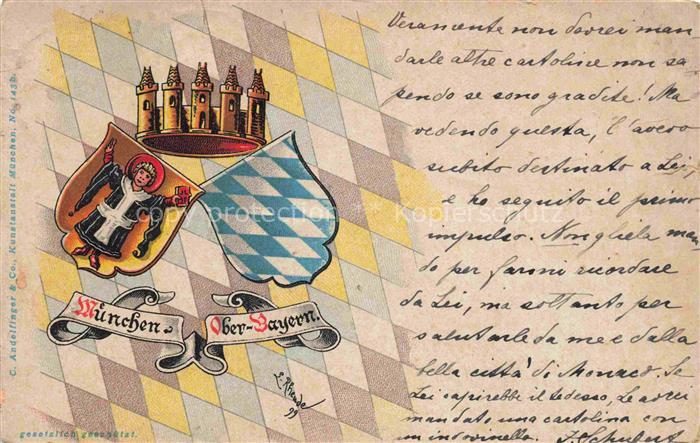 Veramente non dovrei man
darle altre cartoline non sa
pendo se sono gradite! Ma
vedendo questa, l'avevo
subito destinata a Lei,
e ho seguito il primo
impulso. Non gliela man
do per farmi ricordare
da Lei, ma soltanto per
salutarla da me e dalla
bella città di Monaco. Se
Lei capirebbe il tedesco, Le avrei
mandato una cartolina con
un indovinello.
München.
Ober-Bayern.
99
C. Andelfinger & Co., Kunstanstalt München. No. 143
gesetzlich geschützt.
copy protection ** Kopierschutz